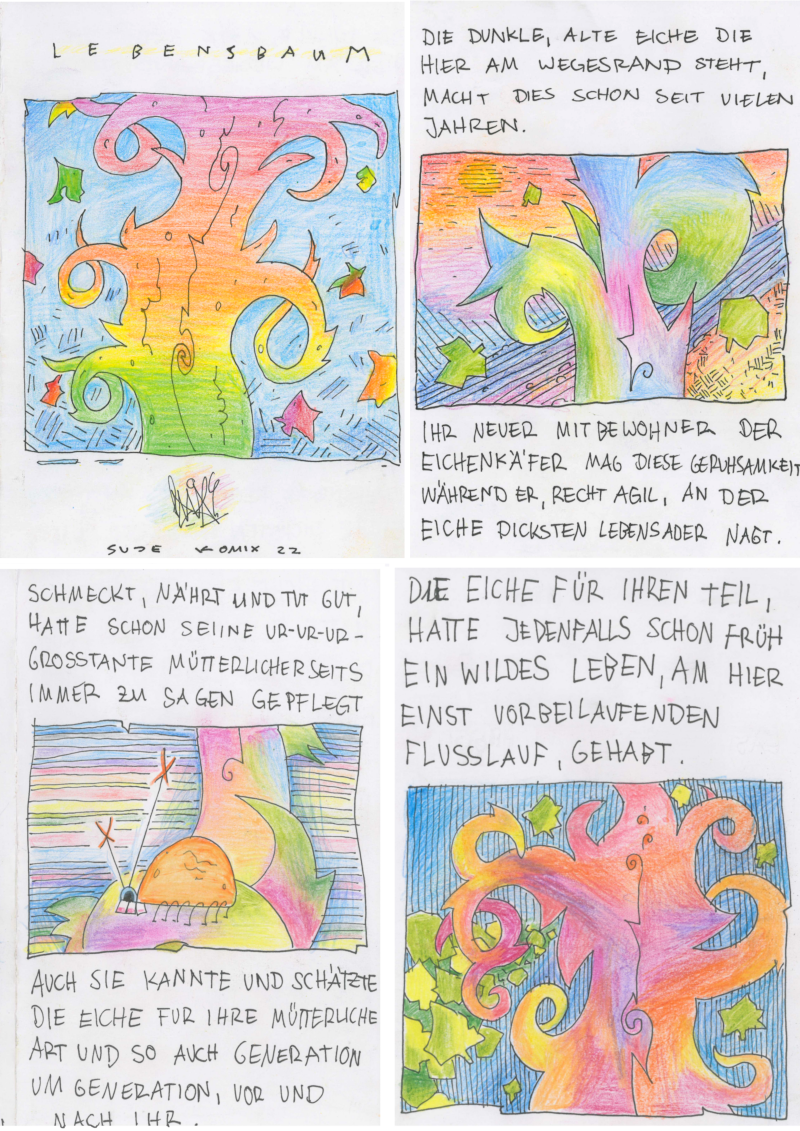 LEBENSBAUM
SUDE KOMIX 22
DIE DUNKLE, ALTE EICHE DIE
HIER AM WEGESRAND STEHT,
MACHT DIES SCHON SEIT VIELEN
JAHREN.
IHR NEUER MITBEWOHNER DER
EICHENKÄFER MAG DIESE GERUHSAMKEIT
WÄHREND ER, RECHT AGIL, AN DER
EICHE DICKSTEN LEBENSADER NAGT.
SCHMECKT, NÄHRT UND TUT GUT,
HATTE SCHON SEIINE UR-UR-UR-
GROSSTANTE MÜTTERLICHERSEITS
IMMER ZU SAGEN GEPFLEGT
AUCH SIE KANNTE UND SCHÄTZTE
DIE EICHE FUR IHRE MÜTTERLICHE
ART UND SO AUCH GENERATION
UM GENERATION, VOR UND
NACH IHR.
DIE EICHE FÜR IHREN TEIL,
HATTE JEDENFALLS SCHON FRÜH
EIN WILDES LEBEN, AM HIER
EINST VORBEILAUFENDEN
FLUSSLAUF, GEHABT.